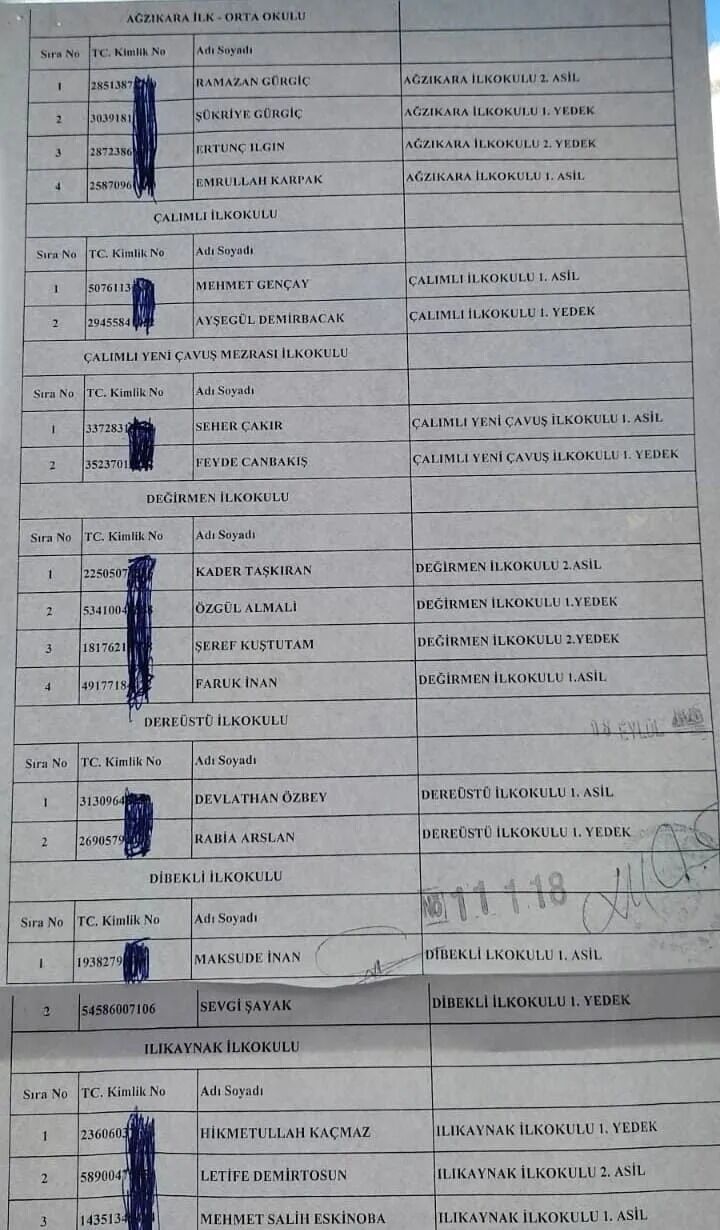 AĞZIKARA İLK - ORTA OKULU
Sıra No TC. Kimlik No Adı Soyadı
1 2851387 RAMAZAN GÜRGİÇ AĞZIKARA İLKOKULU 2. ASİL
2 3039181 ŞÜKRİYE GÜRGİÇ AĞZIKARA İLKOKULU 1. YEDEK
3 2872386 ERTUNÇ ILGIN AĞZIKARA İLKOKULU 2. YEDEK
4 2587096 EMRULLAH KARPAK AĞZIKARA İLKOKULU 1. ASİL
ÇALIMLI İLKOKULU
Sıra No TC. Kimlik No Adı Soyadı
1 5076113 MEHMET GENÇAY ÇALIMLI İLKOKULU 1. ASİL
2 2945584 AYŞEGÜL DEMİRBACAK ÇALIMLI İLKOKULU 1. YEDEK
ÇALIMLI YENİ ÇAVUŞ MEZRASI İLKOKULU
Sıra No TC. Kimlik No Adı Soyadı
1 3372831 SEHER ÇAKIR ÇALIMLI YENİ ÇAVUŞ İLKOKULU 1. ASİL
2 3523701 FEYDE CANBAKIŞ ÇALIMLI YENİ ÇAVUŞ İLKOKULU 1. YEDEK
DEĞİRMEN İLKOKULU
Sıra No TC. Kimlik No Adı Soyadı
1 2250507 KADER TAŞKIRAN DEĞİRMEN İLKOKULU 2.ASİL
2 5341004 ÖZGÜL ALMALİ DEĞİRMEN İLKOKULU 1.YEDEK
3 1817621 ŞEREF KUŞTUTAM DEĞİRMEN İLKOKULU 2.YEDEK
4 4917718 FARUK İNAN DEĞİRMEN İLKOKULU 1.ASİL
DEREÜSTÜ İLKOKULU
EYLÜL
Sıra No TC. Kimlik No Adı Soyadı
1 3130964 DEVLATHAN ÖZBEY DEREÜSTÜ İLKOKULU 1. ASİL
2 2690579 RABİA ARSLAN DEREÜSTÜ İLKOKULU 1. YEDEK
DİBEKLİ İLKOKULU
No 11 1.18
Sıra No TC. Kimlik No Adı Soyadı
1 1938279 MAKSUDE İNAN DİBEKLİ LKOKULU 1. ASİL
2 54586007106 SEVGİ ŞAYAK DİBEKLİ İLKOKULU 1. YEDEK
ILIKAYNAK İLKOKULU
Sıra No TC. Kimlik No Adı Soyadı
1 2360603 HİKMETULLAH KAÇMAZ ILIKAYNAK İLKOKULU 1. YEDEK
2 5890047 LETİFE DEMİRTOSUN ILIKAYNAK İLKOKULU 2. ASİL
3 1435134 MEHMET SALİH ESKİNOBA ILIKAYNAK İLKOKULU 1. ASİL